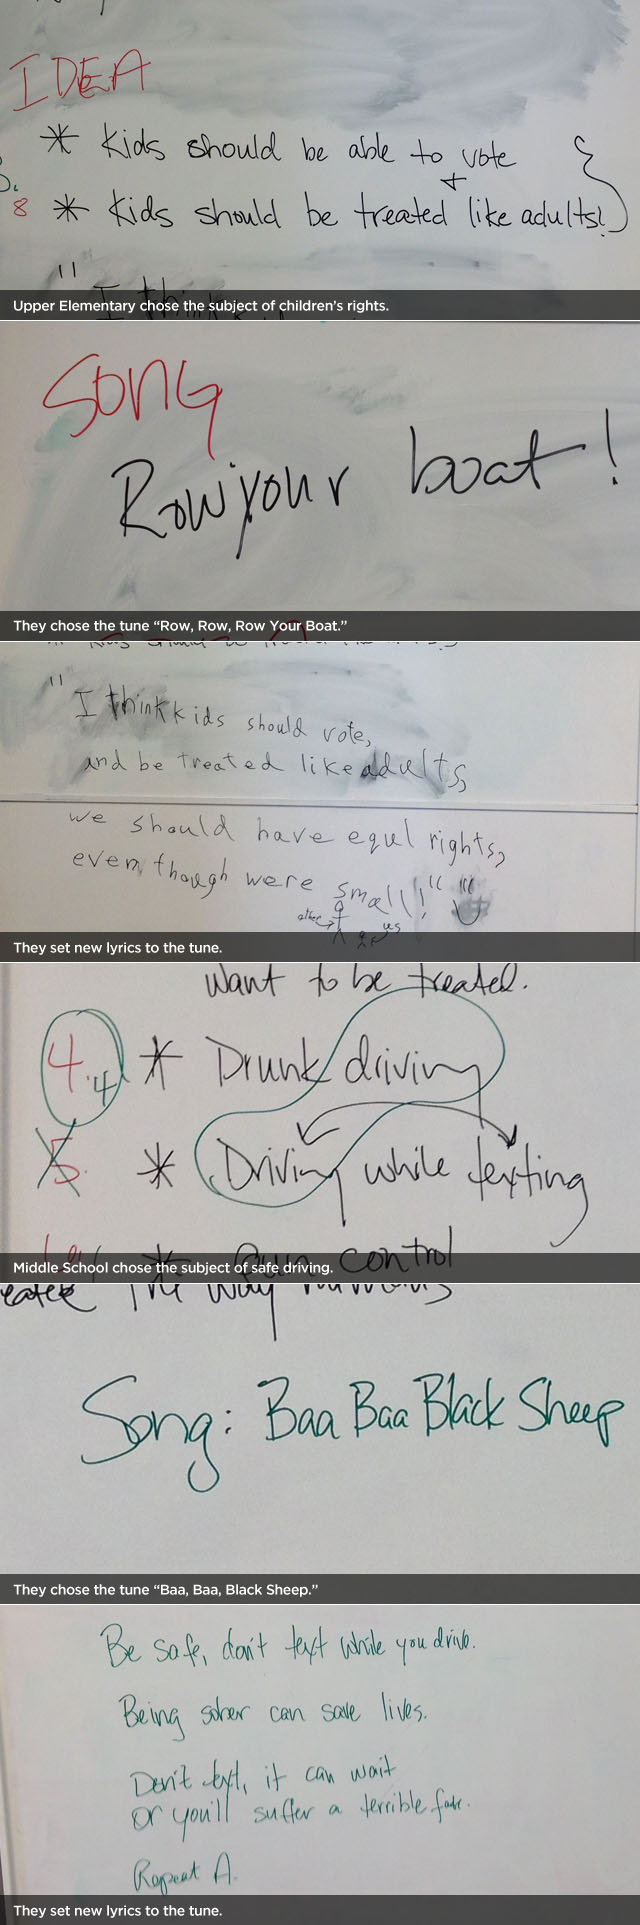 IDEA
* Kids should be able to vote
+
8 * Kids should be treated like adults!
"I think
Upper Elementary chose the subject of children's rights.
SONG
Row your boat!
They chose the tune “Row, Row, Row Your Boat.”
"I think kids should vote,
and be treated like adults,
we should have equl rights,
even though were small!"
yes
They set new lyrics to the tune.
want to be treated.
4. 4 * Drunk driving
5. * Driving while texting
* Gun control
Middle School chose the subject of safe driving.
The way humans
Song: Baa Baa Black Sheep
They chose the tune “Baa, Baa, Black Sheep.”
Be safe, don't text while you drive.
Being sober can save lives.
Don't text, it can wait
or you'll suffer a terrible fate.
Repeat A.
They set new lyrics to the tune.